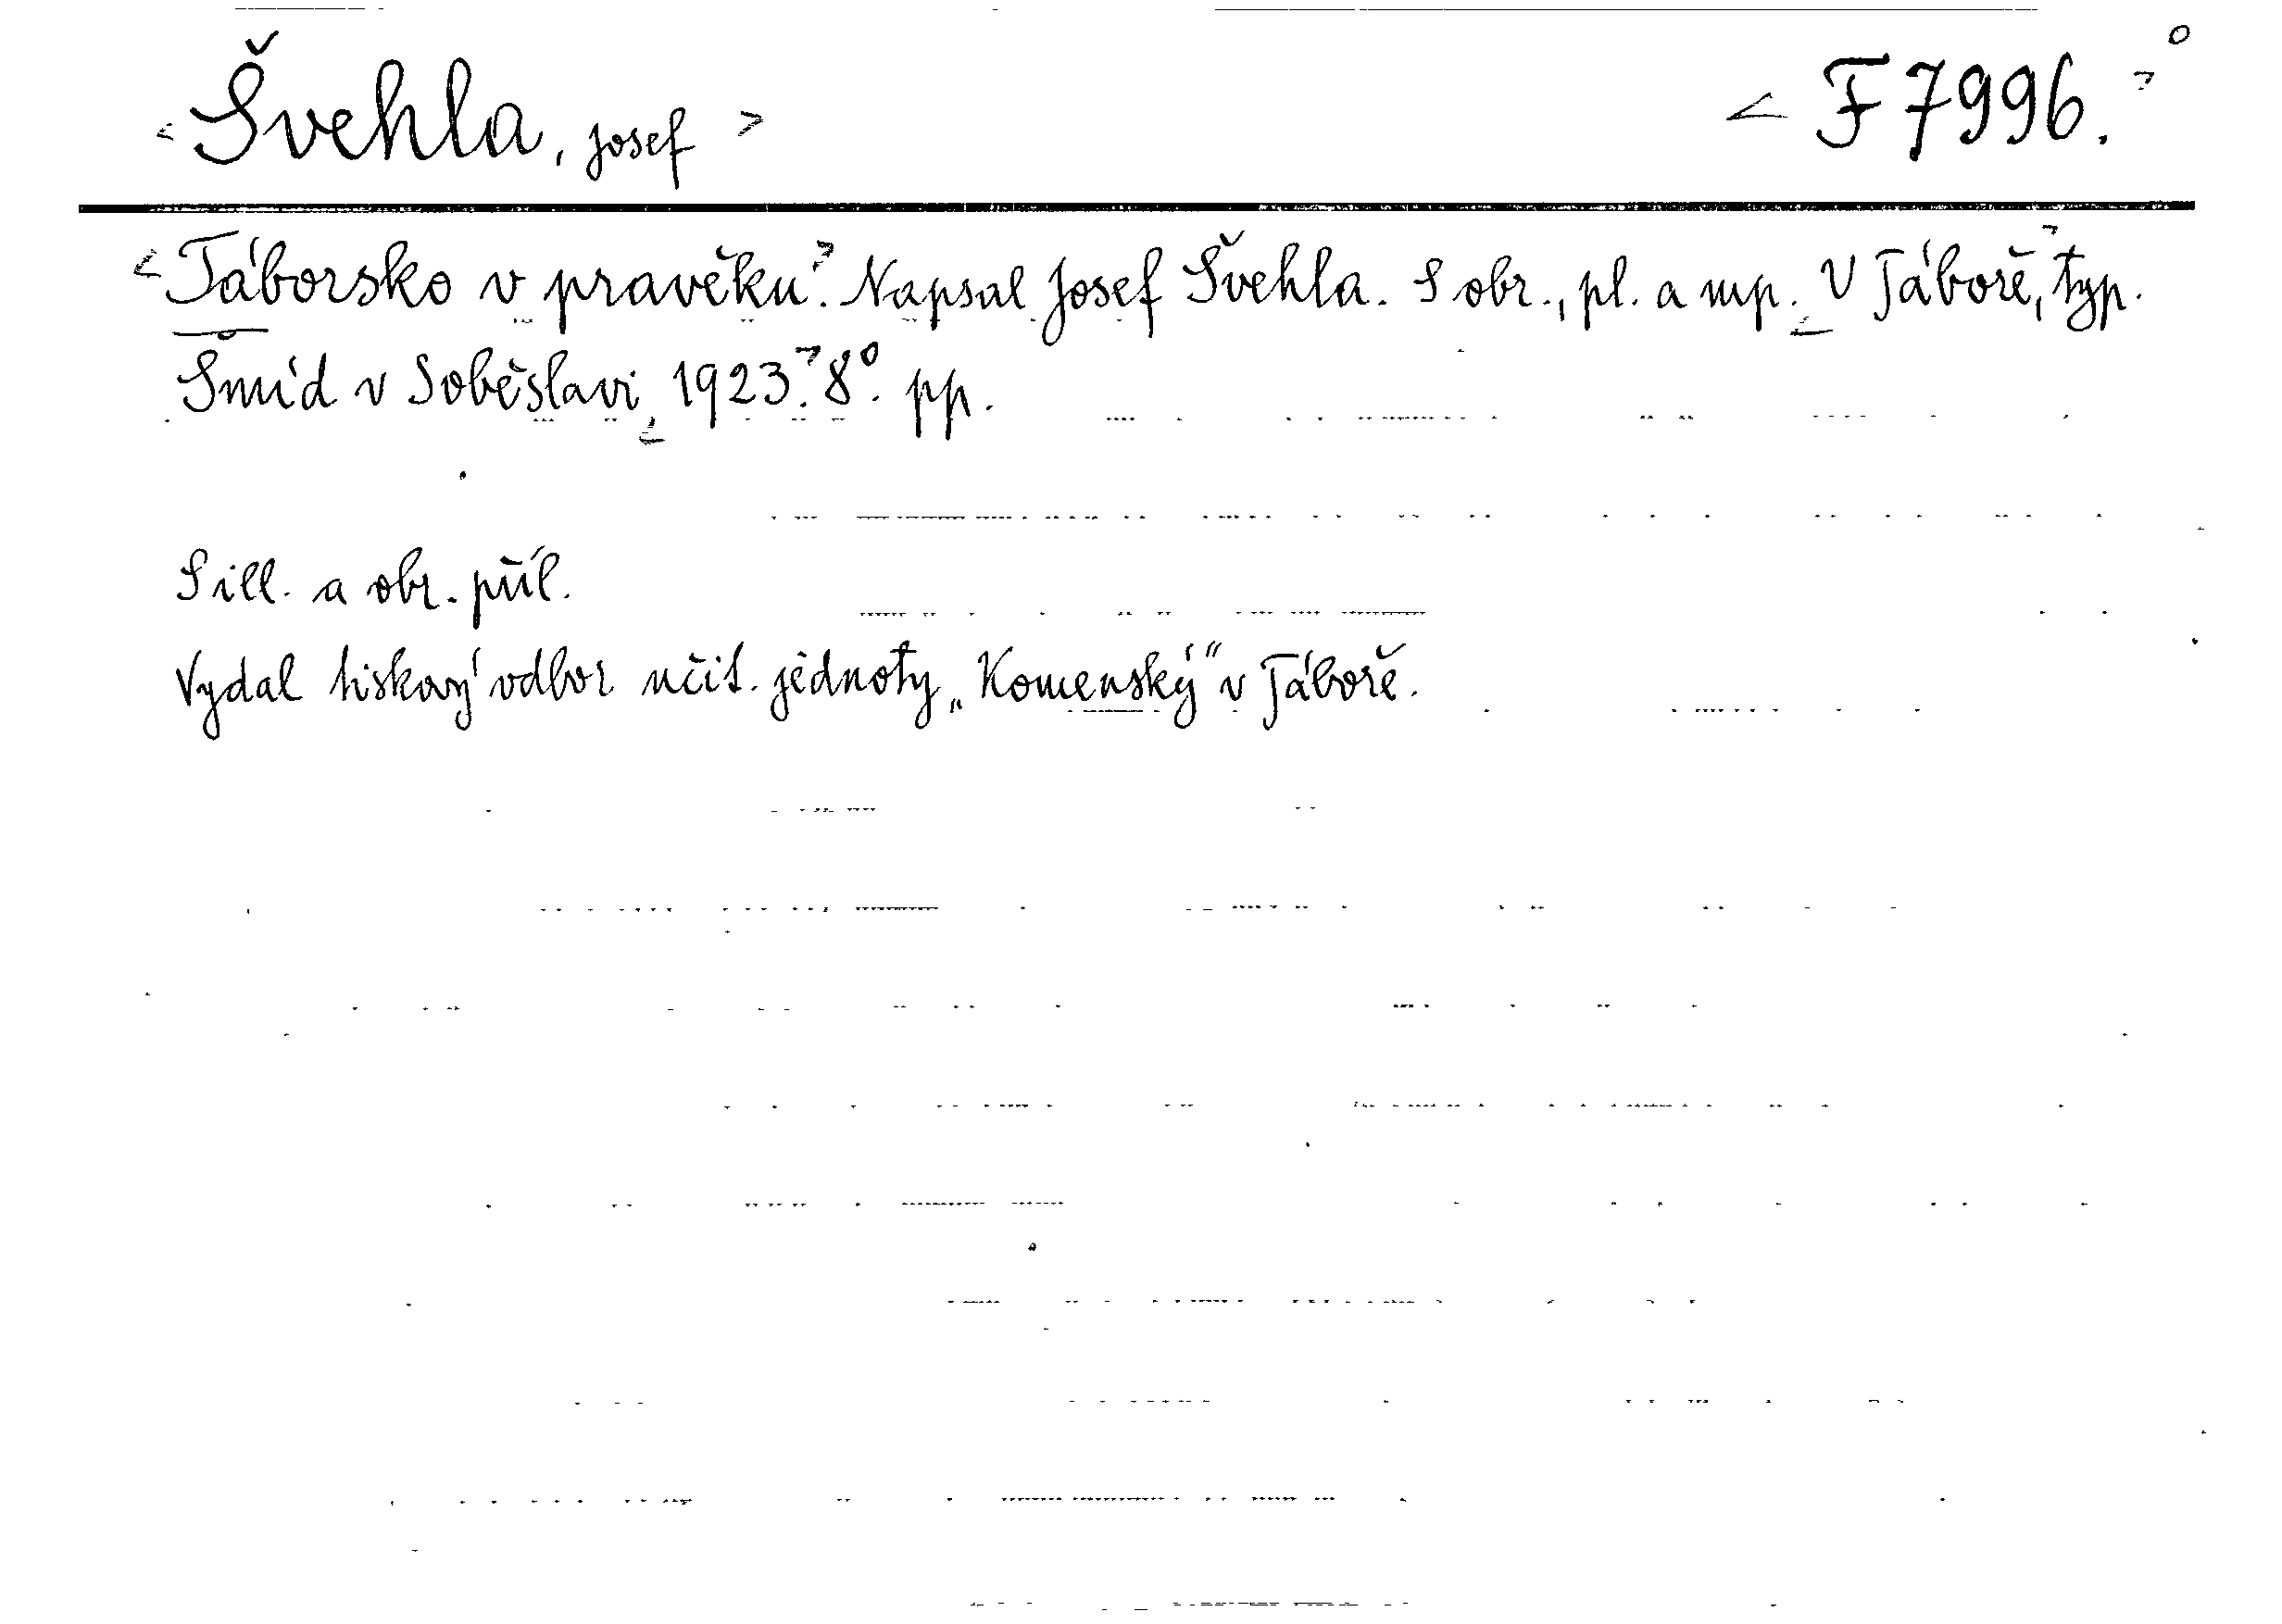 < Švehla, Josef > < F 7996. >
< Táborsko v pravěku >. Napsal Josef Švehla. S obr., pl. a mp. < V Táboře, > typ.
Šmíd v Soběslavi, < 1923. > 8°. pp.
S ill. a obr. příl.
Vydal tiskový odbor učit. jednoty „Komenský“ v Táboře.